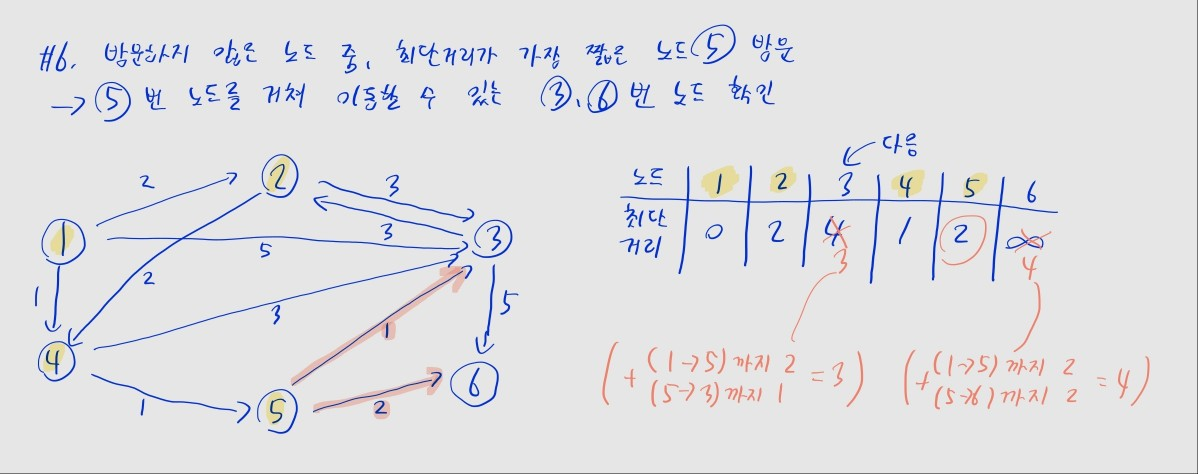 #6. 방문하지 않은 노드 중, 최단거리가 가장 짧은 노드 5 방문
→ 5 번 노드를 거쳐 이동할 수 있는 3, 6 번 노드 확인
다음
노드 1 2 3 4 5 6
최단 거리 0 2 4 1 2 ∞
3 4
2
2
3
3
1
5
3
5
2
1
3
1
4
5
6
1
5
2
(+ (1→5)까지 2 = 3)
(5→3)까지 1
(+ (1→5)까지 2 = 4)
(5→6)까지 2